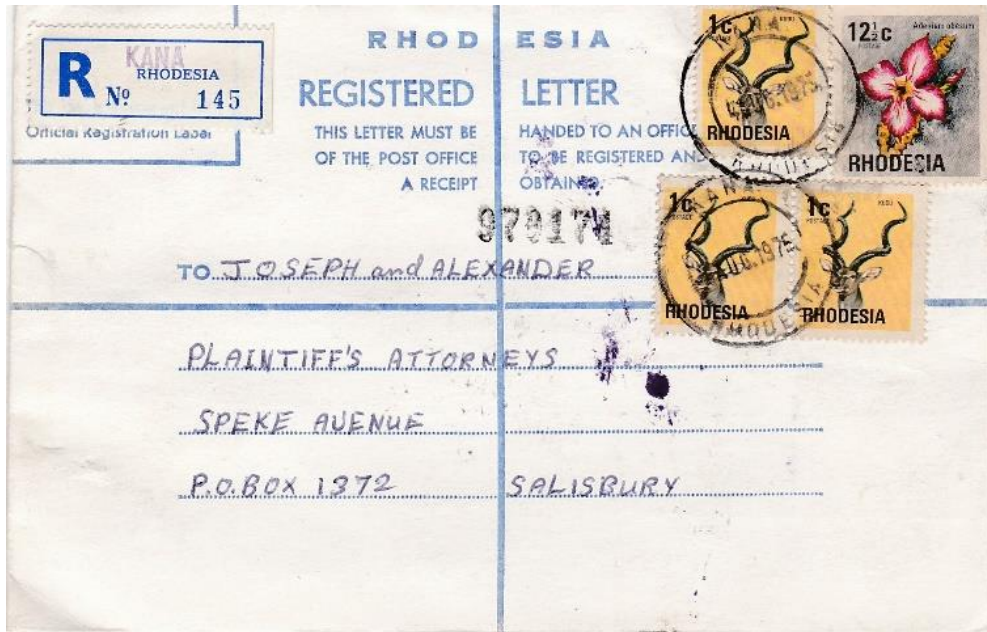 KANA
R RHODESIA
Nº 145
Official Registration Label
RHODESIA
REGISTERED LETTER
THIS LETTER MUST BE HANDED TO AN OFFIC
OF THE POST OFFICE TO BE REGISTERED AND
A RECEIPT OBTAINED.
1c
RHODESIA
12½c
Adenium obesum
RHODESIA
KANA
RHODESIA
970171
1c
POSTAGE
RHODESIA
1c
POSTAGE
KUDU
RHODESIA
KANA
1975
RHODESIA
TO JOSEPH and ALEXANDER
PLAINTIFF'S ATTORNEYS
SPEKE AVENUE
P.O.BOX 1372 SALISBURY